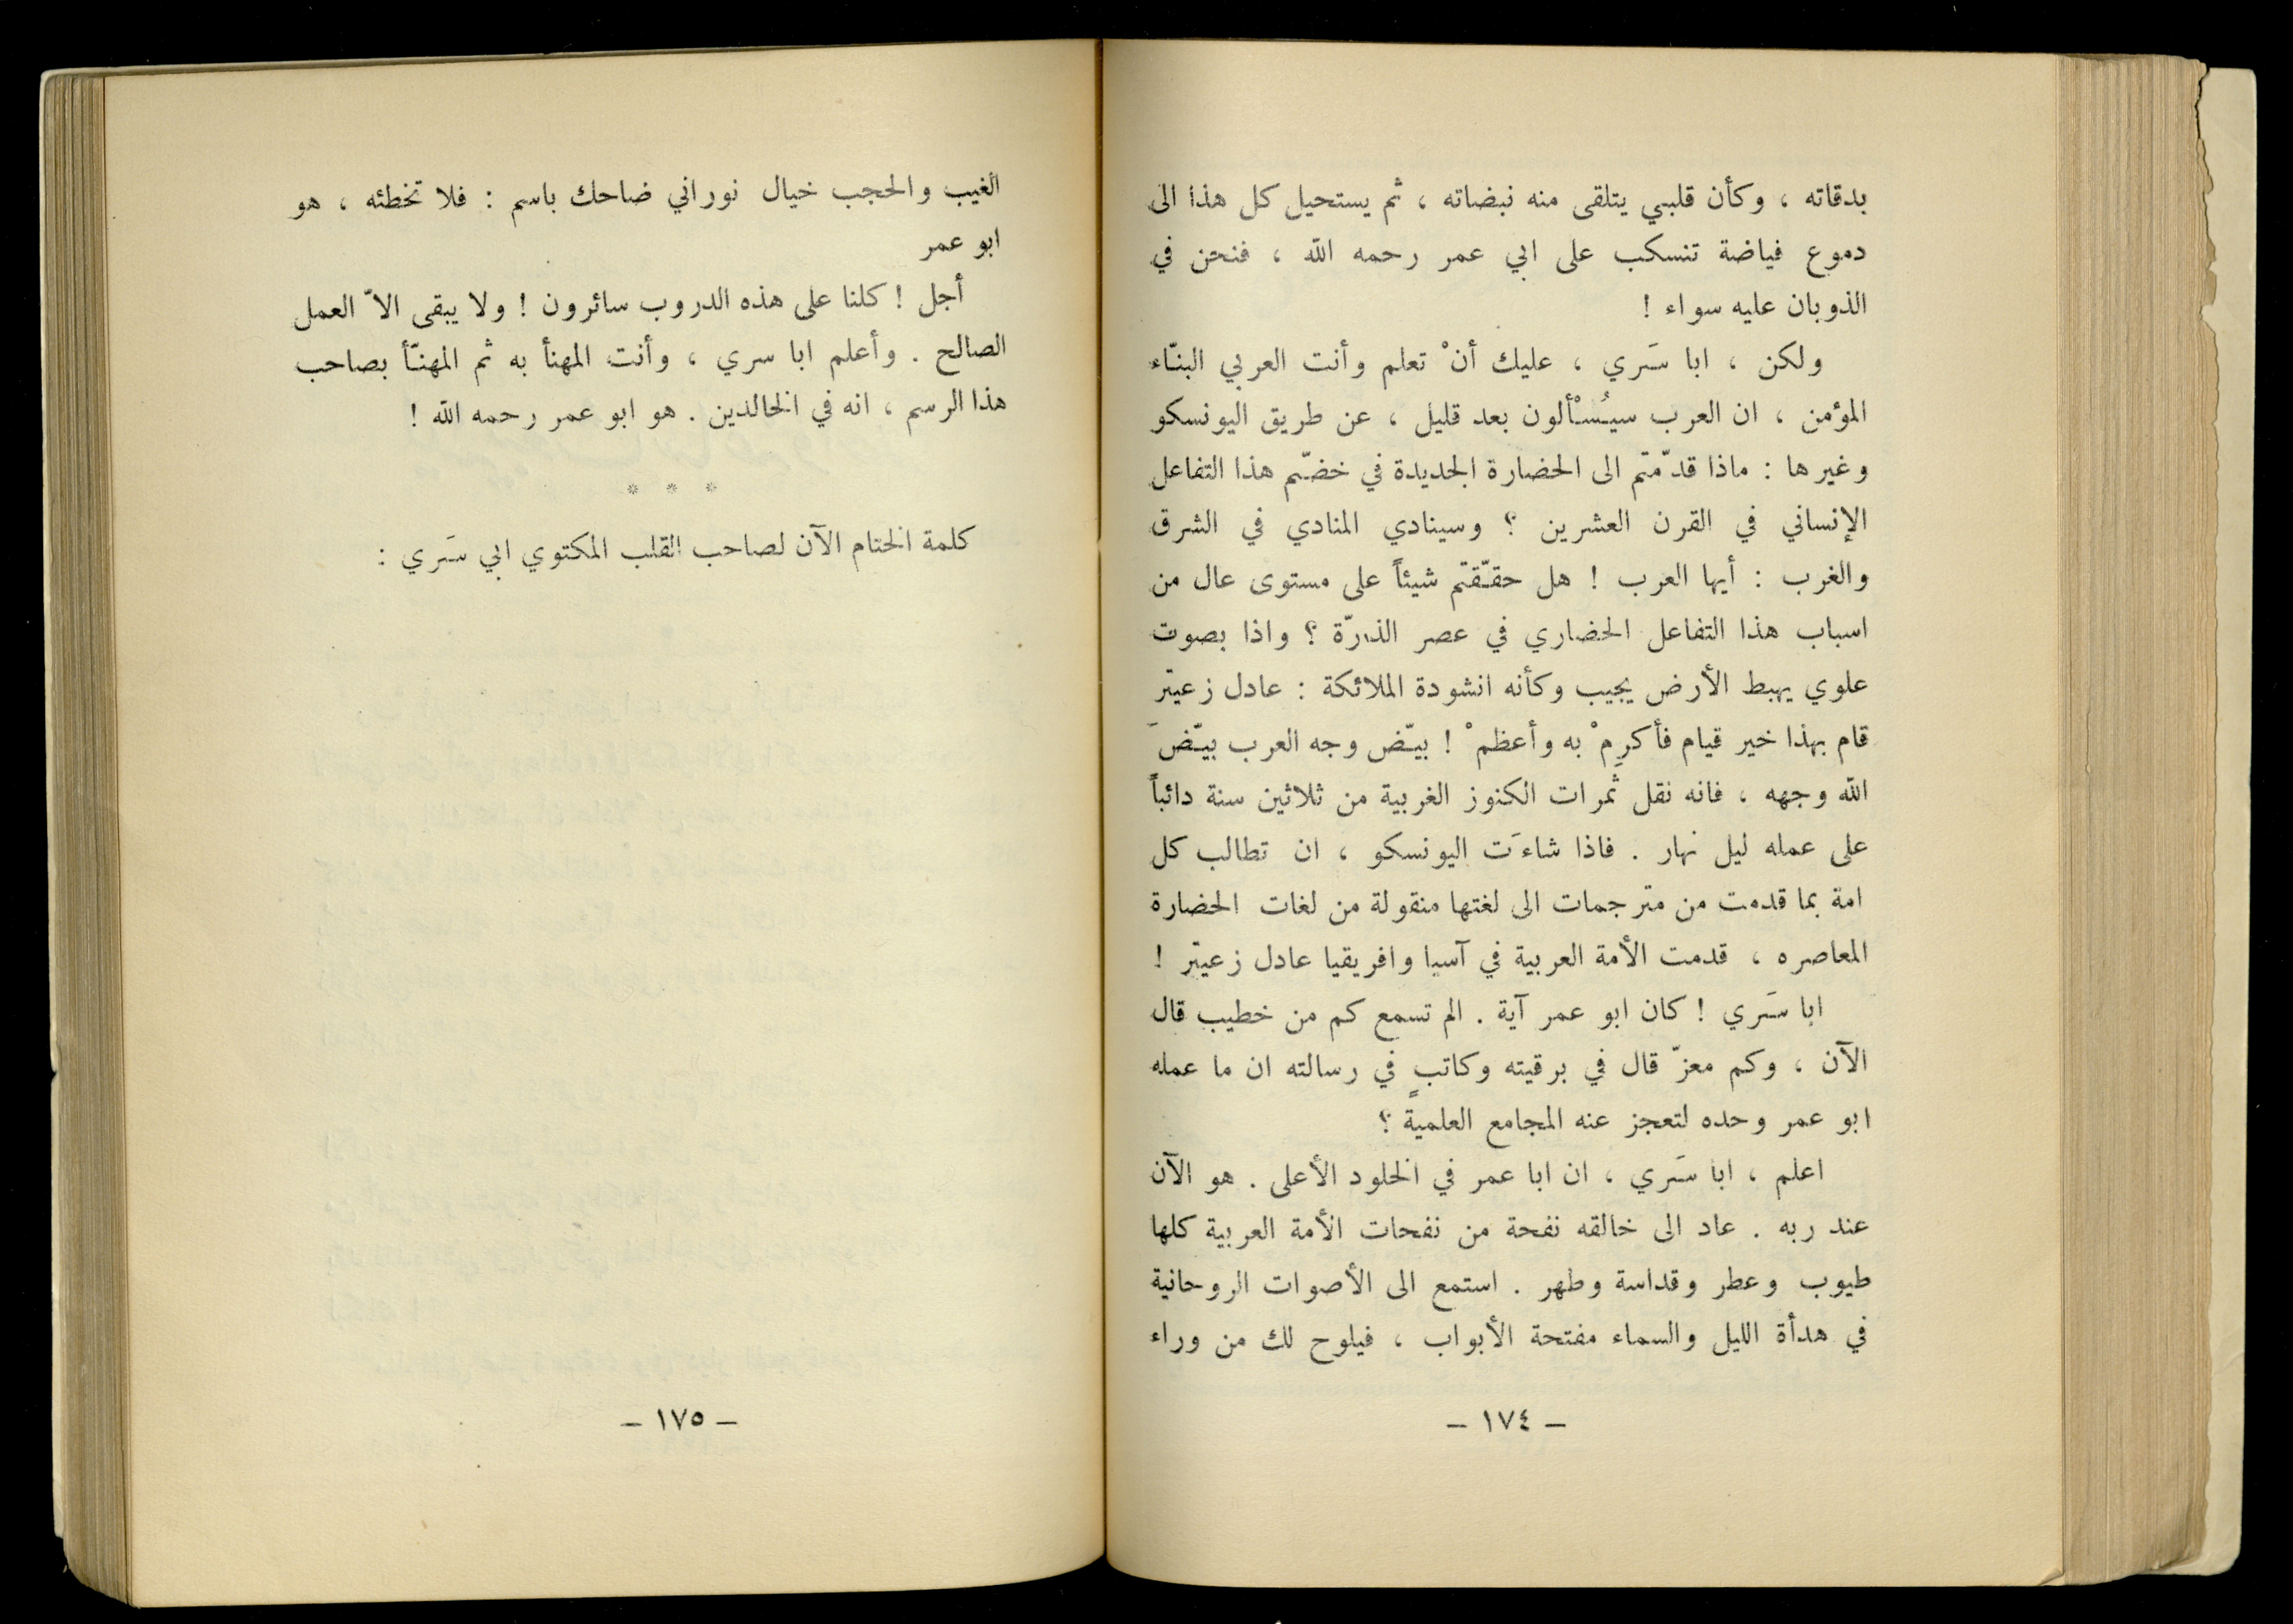 بدقاته ، وكأن قلبي يتلقى منه نبضاته ، ثم يستحيل كل هذا الى
دموع فياضة تنسكب على ابي عمر رحمه الله ، فنحن في
الذوبان عليه سواء !
ولكن ، ابا سَري ، عليك أنْ تعلم وأنت العربي البنّاء
المؤمن ، ان العرب سيُسْألون بعد قليل ، عن طريق اليونسكو
وغيرها : ماذا قدّمتم الى الحضارة الجديدة في خضّم هذا التفاعل
الإنساني في القرن العشرين ؟ وسينادي المنادي في الشرق
والغرب : أيها العرب ! هل حقّقتم شيئاً على مستوى عال من
اسباب هذا التفاعل الحضاري في عصر الذرّة ؟ واذا بصوت
علوي يهبط الأرض يجيب وكأنه انشودة الملائكة : عادل زعيتر
قام بهذا خير قيام فأكرِمْ به وأعظمْ ! بيّض وجه العرب بيّضَ
الله وجهه ، فانه نقل ثَمرات الكنوز الغربية من ثلاثين سنة دائباً
على عمله ليل نهار . فاذا شاءَت اليونسكو ، ان تطالب كل
امة بما قدمت من مترجمات الى لغتها منقولة من لغات الحضارة
المعاصره ، قدمت الأمة العربية في آسيا وافريقيا عادل زعيتر !
ابا سَري ! كان ابو عمر آية . الم تسمع كم من خطيب قال
الآن ، وكم معزّ قال في برقيته وكاتبٍ في رسالته ان ما عمله
ابو عمر وحده لتعجز عنه المجامع العلمية ؟
اعلم ، ابا سَري ، ان ابا عمر في الخلود الأعلى . هو الآن
عند ربه . عاد الى خالقه نفحة من نفحات الأمة العربية كلها
طيوب وعطر وقداسة وطهر . استمع الى الأصوات الروحانية
في هدأة الليل والسماء مفتحة الأبواب ، فيلوح لك من وراء
– ١٧٤ –
الغيب والحجب خيال نوراني ضاحك باسم : فلا تخطئه ، هو
ابو عمر
أجل ! كلنا على هذه الدروب سائرون ! ولا يبقى الاّ العمل
الصالح . وأعلم ابا سري ، وأنت المهنأ به ثم المهنّأ بصاحب
هذا الرسم ، انه في الخالدين . هو ابو عمر رحمه الله !
* * *
كلمة الختام الآن لصاحب القلب المكتوي ابي سَري :
– ١٧٥ –